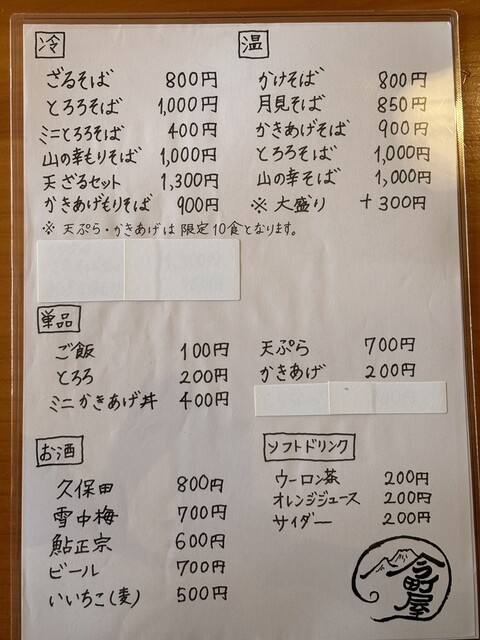 冷
ざるそば 800円
とろろそば 1,000円
ミニとろろそば 400円
山の幸もりそば 1,000円
天ざるセット 1,300円
かきあげもりそば 900円
※ 天ぷら・かきあげは 限定10食となります。
温
かけそば 800円
月見そば 850円
かきあげそば 900円
とろろそば 1,000円
山の幸そば 1,000円
※ 大盛り +300円
単品
ご飯 100円
とろろ 200円
ミニかきあげ丼 400円
天ぷら 700円
かきあげ 200円
お酒
久保田 800円
雪中梅 700円
鮎正宗 600円
ビール 700円
いいちこ(麦) 500円
ソフトドリンク
ウーロン茶 200円
オレンジジュース 200円
サイダー 200円
今町屋